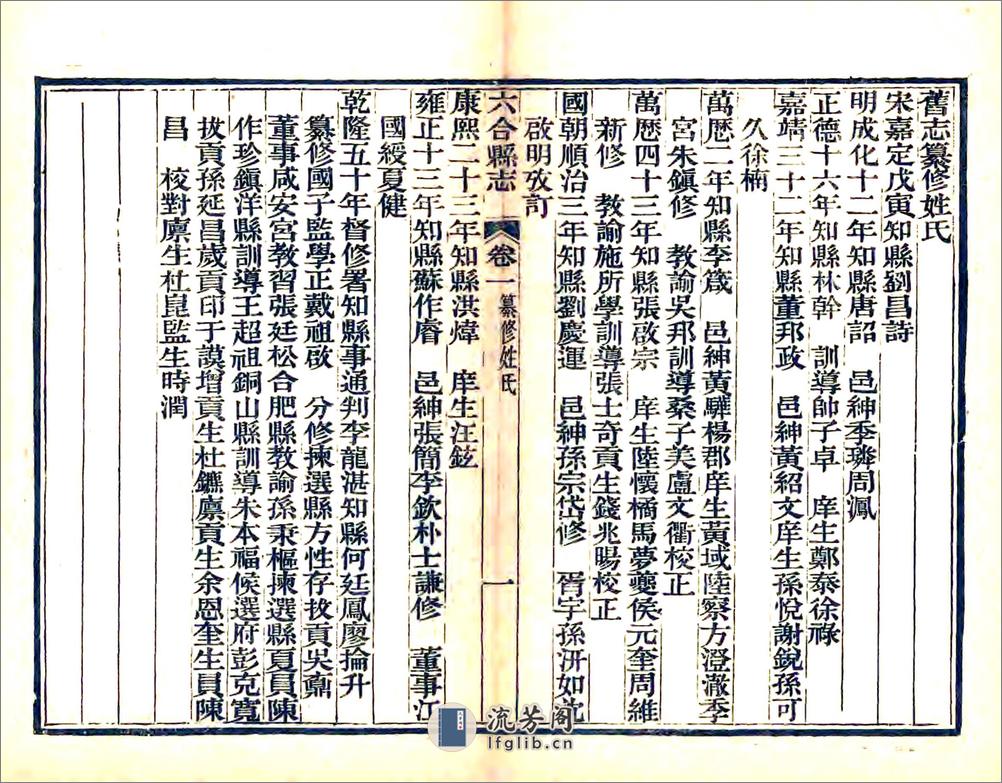 舊志纂修姓氏
宋嘉定戊寅知縣劉昌詩
明成化十二年知縣唐詔　邑紳季璘周鳳
正德十六年知縣林幹　訓導帥子卓　庠生鄭泰徐祿
嘉靖三十二年知縣董邦政　邑紳黃紹文庠生孫悅謝銳孫可
久徐楠
萬歷二年知縣李箴　邑紳黃驊楊郡庠生黃域陸察方澄澈季
宮朱鎮修　教諭吳邦訓導桑子美盧文衢校正
萬歷四十三年知縣張啟宗　庠生陸懷橘馬夢夔侯元奎周維
新修　教諭施所學訓導張士奇貢生錢兆暘校正
國朝順治三年知縣劉慶運　邑紳孫宗岱修　胥宇孫汧如沈
啟明攷訂
六合縣志　卷一　纂修姓氏　一
康熙二十三年知縣洪煒　庠生汪鉉
雍正十三年知縣蘇作睿　邑紳張簡李欽朴士謙修　董事江
國綬夏健
乾隆五十年督修署知縣事通判李龍湛知縣何廷鳳廖掄升
纂修國子監學正戴祖啟　分修揀選縣方性存拔貢吳鼐
董事咸安宮教習張廷松合肥縣教諭孫秉樞揀選縣夏員陳
作珍鎮洋縣訓導王超祖銅山縣訓導朱本福候選府彭克寬
拔貢孫延昌歲貢印于謨增貢生杜鑣廩貢生余恩奎生員陳
昌　校對廩生杜崑監生時潤
流芳閣
lfglib.cn